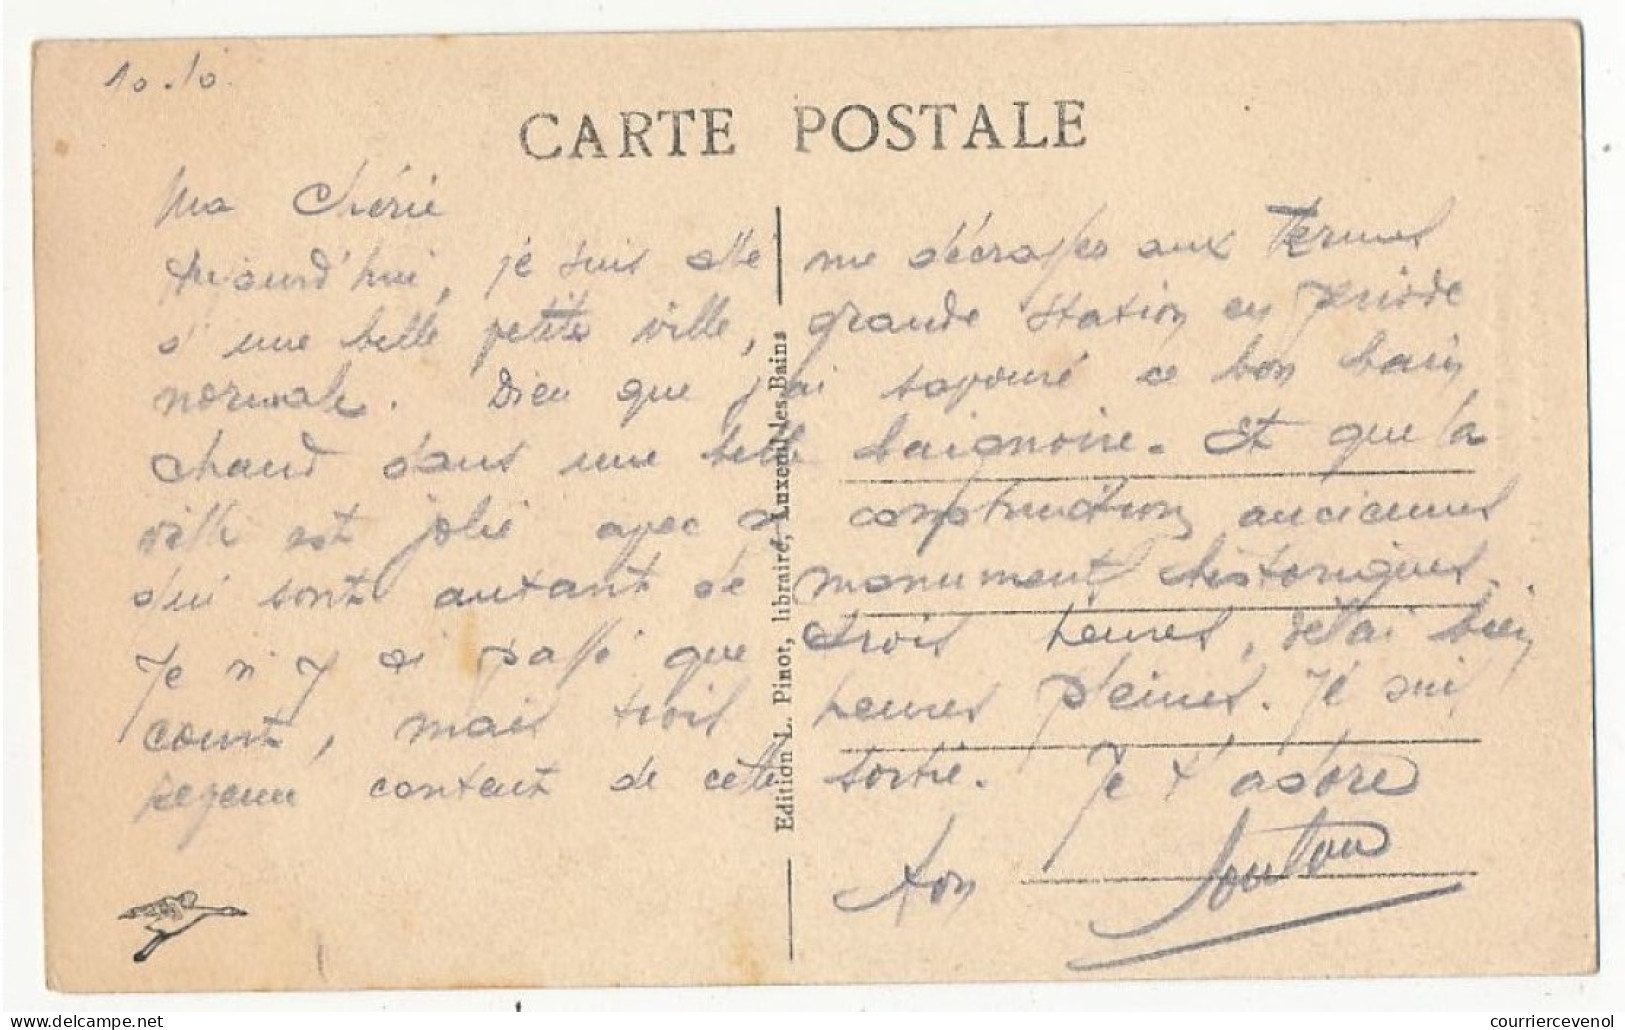 10.10.
CARTE POSTALE
Ma Chérie
Aujourd'hui, je suis allé me décrasser aux Thermes
d'une belle petite ville, grande station en période
normale. Dieu que j'ai savouré ce bon bain
chaud dans une belle baignoire. Et que la
ville est jolie avec construction anciennes
qui sont autant de monument historiques.
Je n'y ai passé que trois heures, délai bien
court, mais trois heures pleines. Je suis
revenu content de cette sortie. Je t'adore
ton Loulou
Edition L. Pinot, libraire, Luxeuil-les-Bains
courriercevenol
delcampe.net